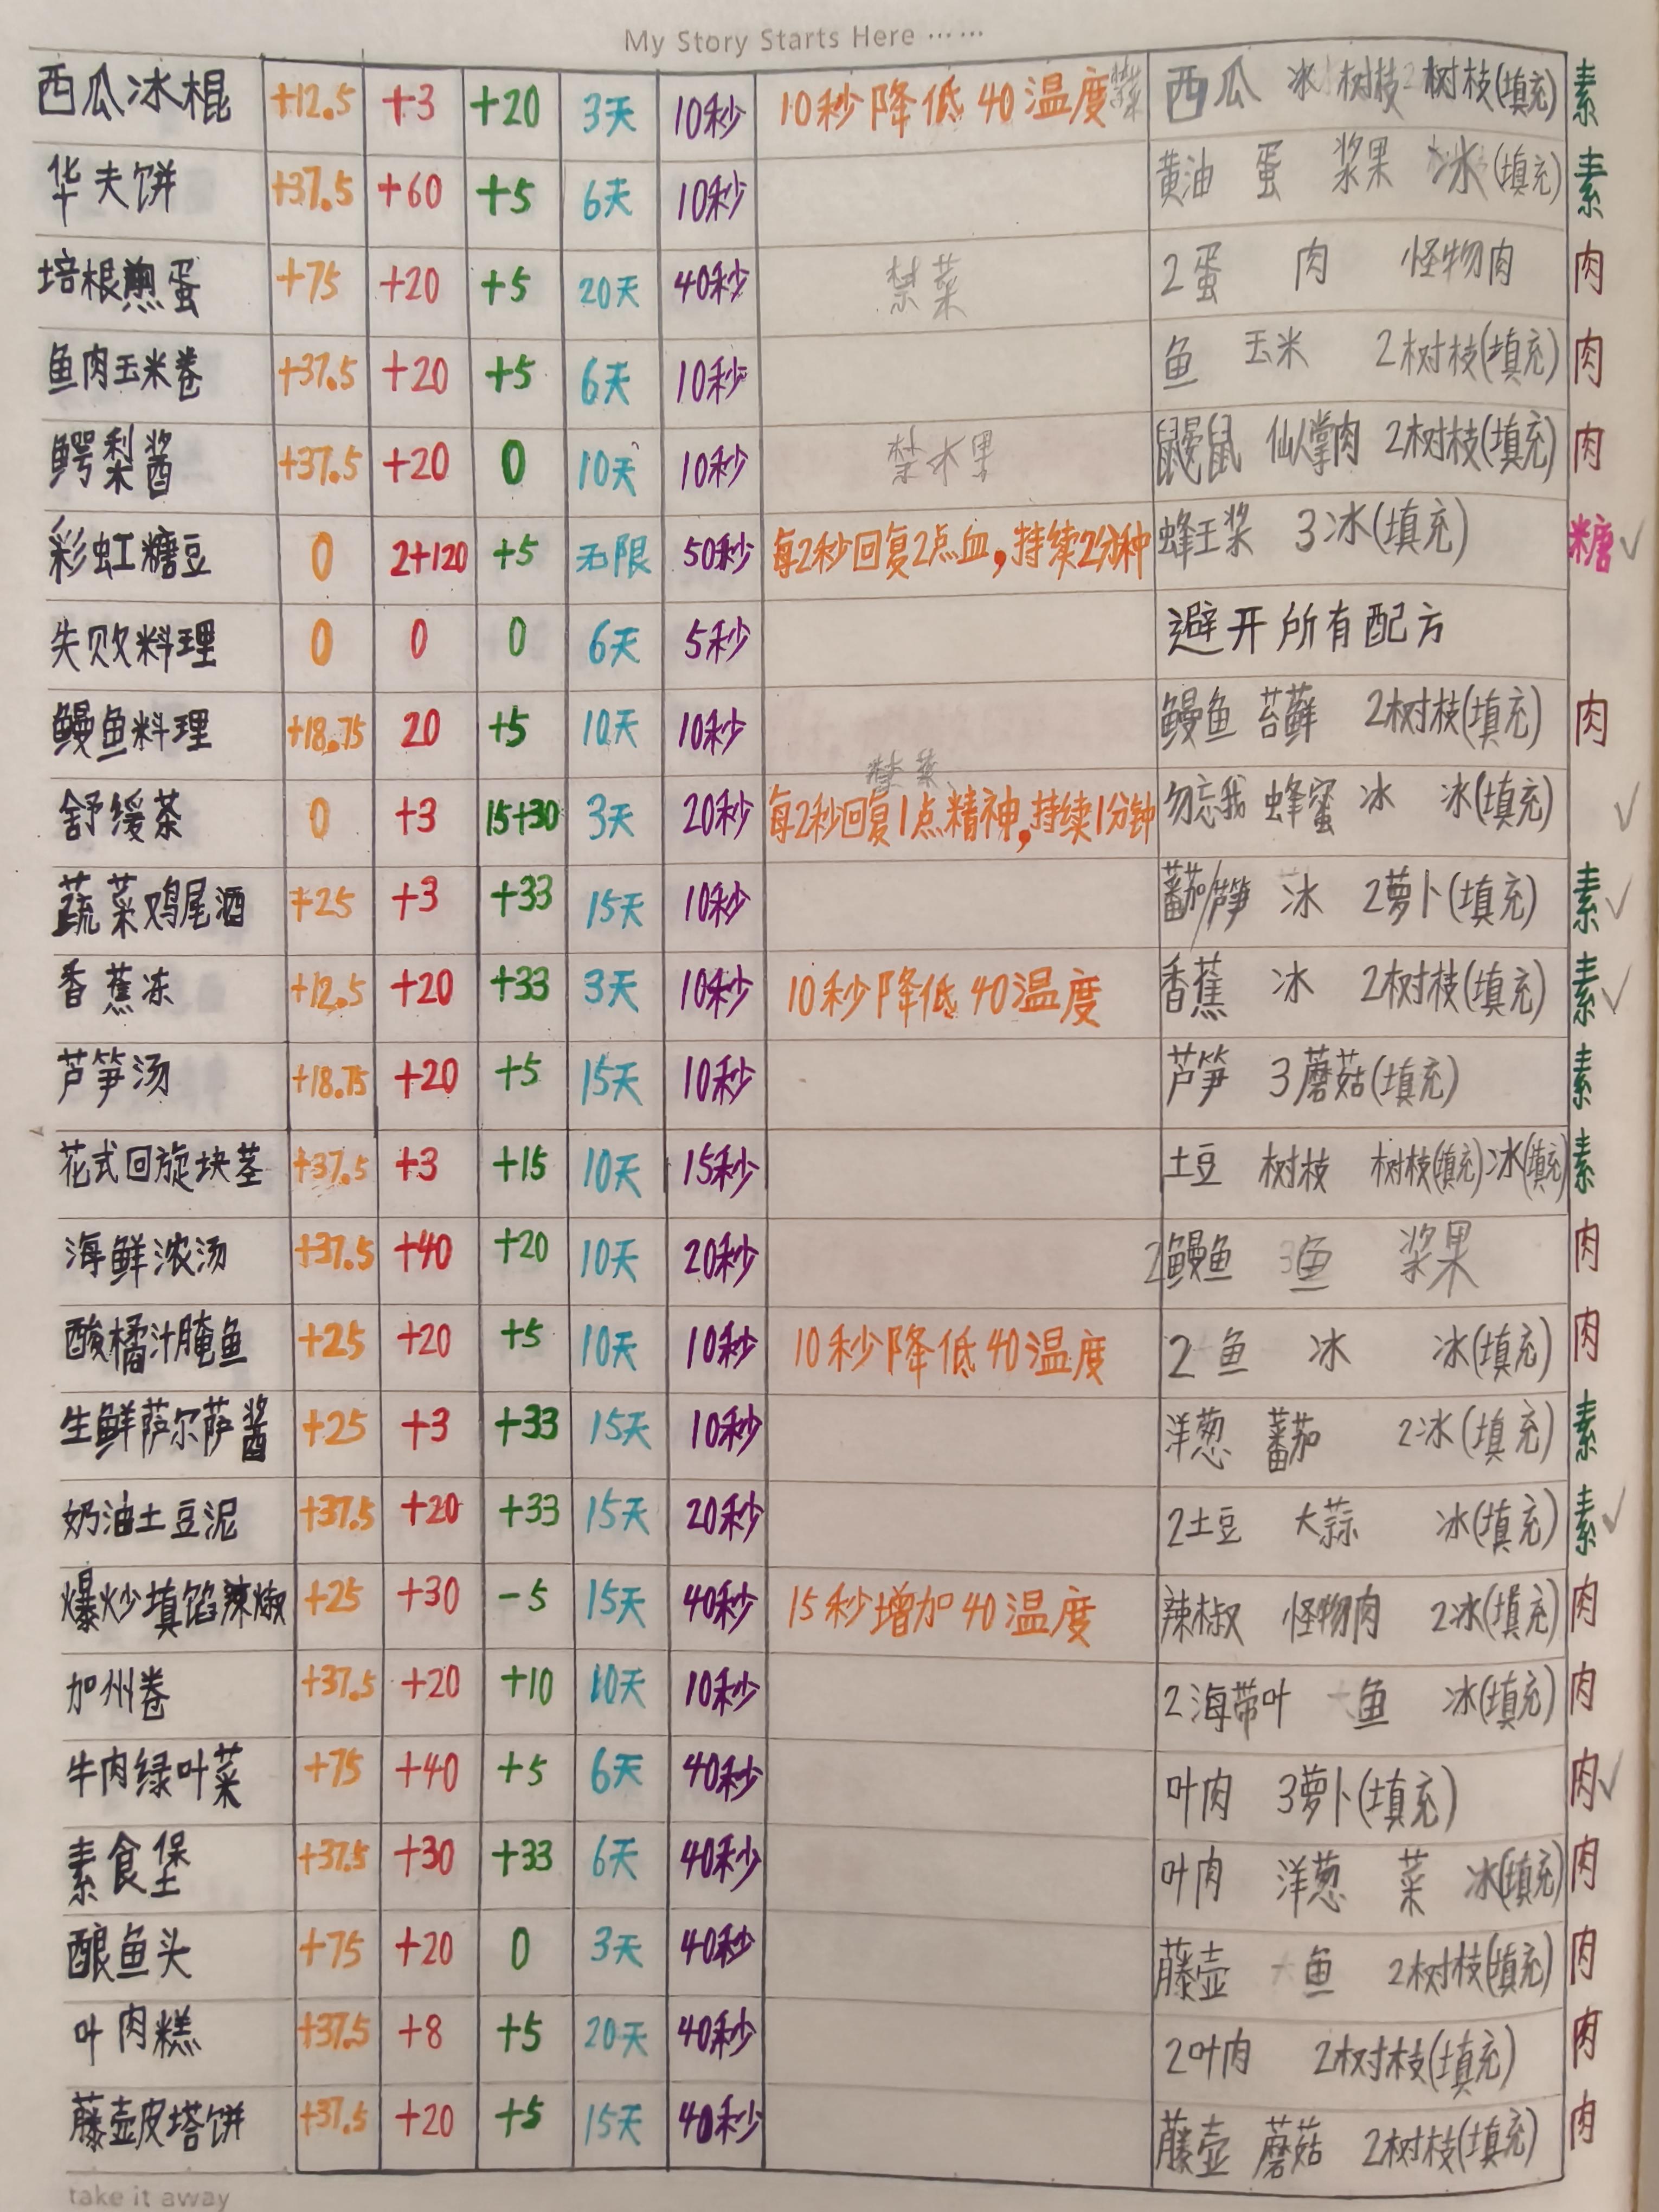 My Story Starts Here ……
西瓜冰棍 +12.5 +3 +20 3天 10秒 10秒降低40温度 禁菜 西瓜 冰 树枝 树枝(填充) 素
华夫饼 +37.5 +60 +5 6天 10秒 黄油 蛋 浆果 冰(填充) 素
培根煎蛋 +75 +20 +5 20天 40秒 禁菜 2蛋 肉 怪物肉 肉
鱼肉玉米卷 +37.5 +20 +5 6天 10秒 鱼 玉米 2树枝(填充) 肉
鳄梨酱 +37.5 +20 0 10天 10秒 禁水果 鼹鼠 仙人掌肉 2树枝(填充) 肉
彩虹糖豆 0 2+120 +5 无限 50秒 每2秒回复2点血,持续2分种 蜂王浆 3冰(填充) 糖 ✓
失败料理 0 0 0 6天 5秒 避开所有配方
鳗鱼料理 +18.75 20 +5 10天 10秒 鳗鱼 苔藓 2树枝(填充) 肉
舒缓茶 0 +3 15+30 3天 20秒 禁菜 每2秒回复1点精神,持续1分钟 勿忘我 蜂蜜 冰 冰(填充) ✓
蔬菜鸡尾酒 +25 +3 +33 15天 10秒 蕃茄/芦笋 冰 2萝卜(填充) 素 ✓
香蕉冻 +12.5 +20 +33 3天 10秒 10秒降低40温度 香蕉 冰 2树枝(填充) 素 ✓
芦笋汤 +18.75 +20 +5 15天 10秒 芦笋 3蘑菇(填充) 素
花式回旋块茎 +37.5 +3 +15 10天 15秒 土豆 树枝 树枝(填充) 冰(填充) 素
海鲜浓汤 +37.5 +40 +20 10天 20秒 2鳗鱼 鱼 浆果 肉
酸橘汁腌鱼 +25 +20 +5 10天 10秒 10秒降低40温度 2鱼 冰 冰(填充) 肉
生鲜萨尔萨酱 +25 +3 +33 15天 10秒 洋葱 蕃茄 2冰(填充) 素
奶油土豆泥 +37.5 +20 +33 15天 20秒 2土豆 大蒜 冰(填充) 素 ✓
爆炒填馅辣椒 +25 +30 -5 15天 40秒 15秒增加40温度 辣椒 怪物肉 2冰(填充) 肉
加州卷 +37.5 +20 +10 10天 10秒 2海带叶 鱼 冰(填充) 肉
牛肉绿叶菜 +75 +40 +5 6天 40秒 叶肉 3萝卜(填充) 肉 ✓
素食堡 +37.5 +30 +33 6天 40秒 叶肉 洋葱 菜 冰(填充) 肉
酿鱼头 +75 +20 0 3天 40秒 藤壶 鱼 2树枝(填充) 肉
叶肉糕 +37.5 +8 +5 20天 40秒 2叶肉 2树枝(填充) 肉
藤壶皮塔饼 +37.5 +20 +5 15天 40秒 藤壶 蘑菇 2树枝(填充) 肉
take it away